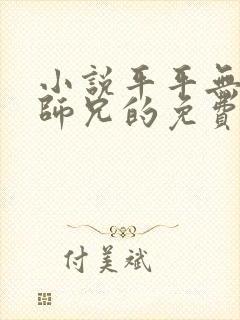 小說平平無
師兄的免費
付美斌